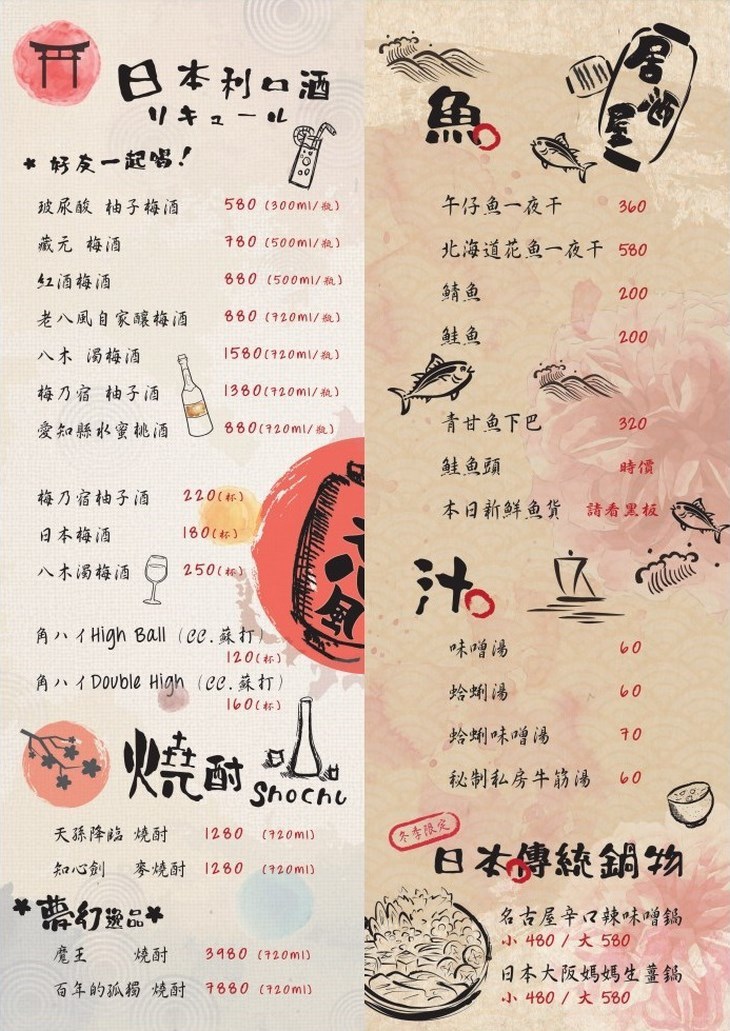 日本利口酒
リキュール
好友一起喝！
玻尿酸 柚子梅酒 580 (300ml/瓶)
藏元 梅酒 780 (500ml/瓶)
紅酒梅酒 880 (500ml/瓶)
老八風自家釀梅酒 880 (720ml/瓶)
八木 濁梅酒 1580(720ml/瓶)
梅乃宿 柚子酒 1380(720ml/瓶)
愛知縣水蜜桃酒 880(720ml/瓶)
梅乃宿柚子酒 220(杯)
日本梅酒 180(杯)
八木濁梅酒 250(杯)
角ハイHigh Ball (CC.蘇打)
120(杯)
角ハイDouble High (CC.蘇打)
160(杯)
燒酎 Shochu
天孫降臨 燒酎 1280 (720ml)
知心劍 麥燒酎 1280 (720ml)
夢幻逸品
魔王 燒酎 3980 (720ml)
百年的孤獨 燒酎 7880 (720ml)
八風
居酒屋
魚。
午仔魚一夜干 360
北海道花魚一夜干 580
鯖魚 200
鮭魚 200
青甘魚下巴 320
鮭魚頭 時價
本日新鮮魚貨 請看黑板
汁。
味噌湯 60
蛤蜊湯 60
蛤蜊味噌湯 70
秘制私房牛筋湯 60
冬季限定
日本傳統鍋物
名古屋辛口辣味噌鍋
小 480 / 大 580
日本大阪媽媽生薑鍋
小 480 / 大 580